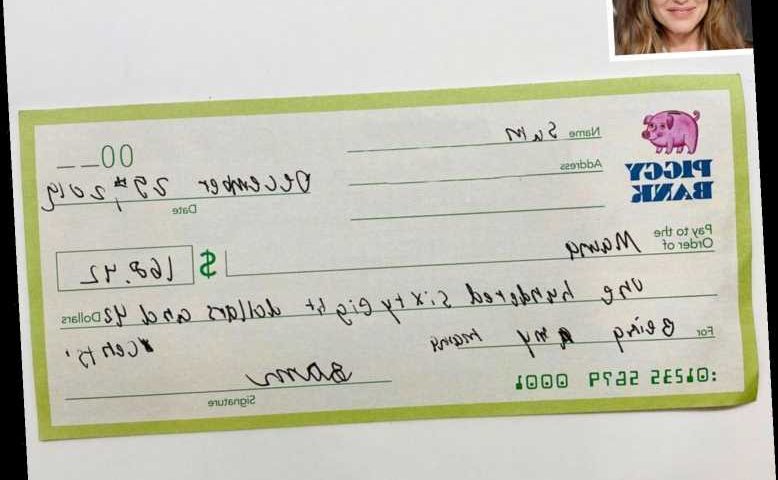 PIGGY
BANK
Name Sam
Address
00__
December 29th, 2019
Date
Pay to the
Order of Mama
$ 168.42
one hundered sixty eight dollars and 42 Dollars
cents.
For Being my mama
Sam
Signature
:01532 2679 0001